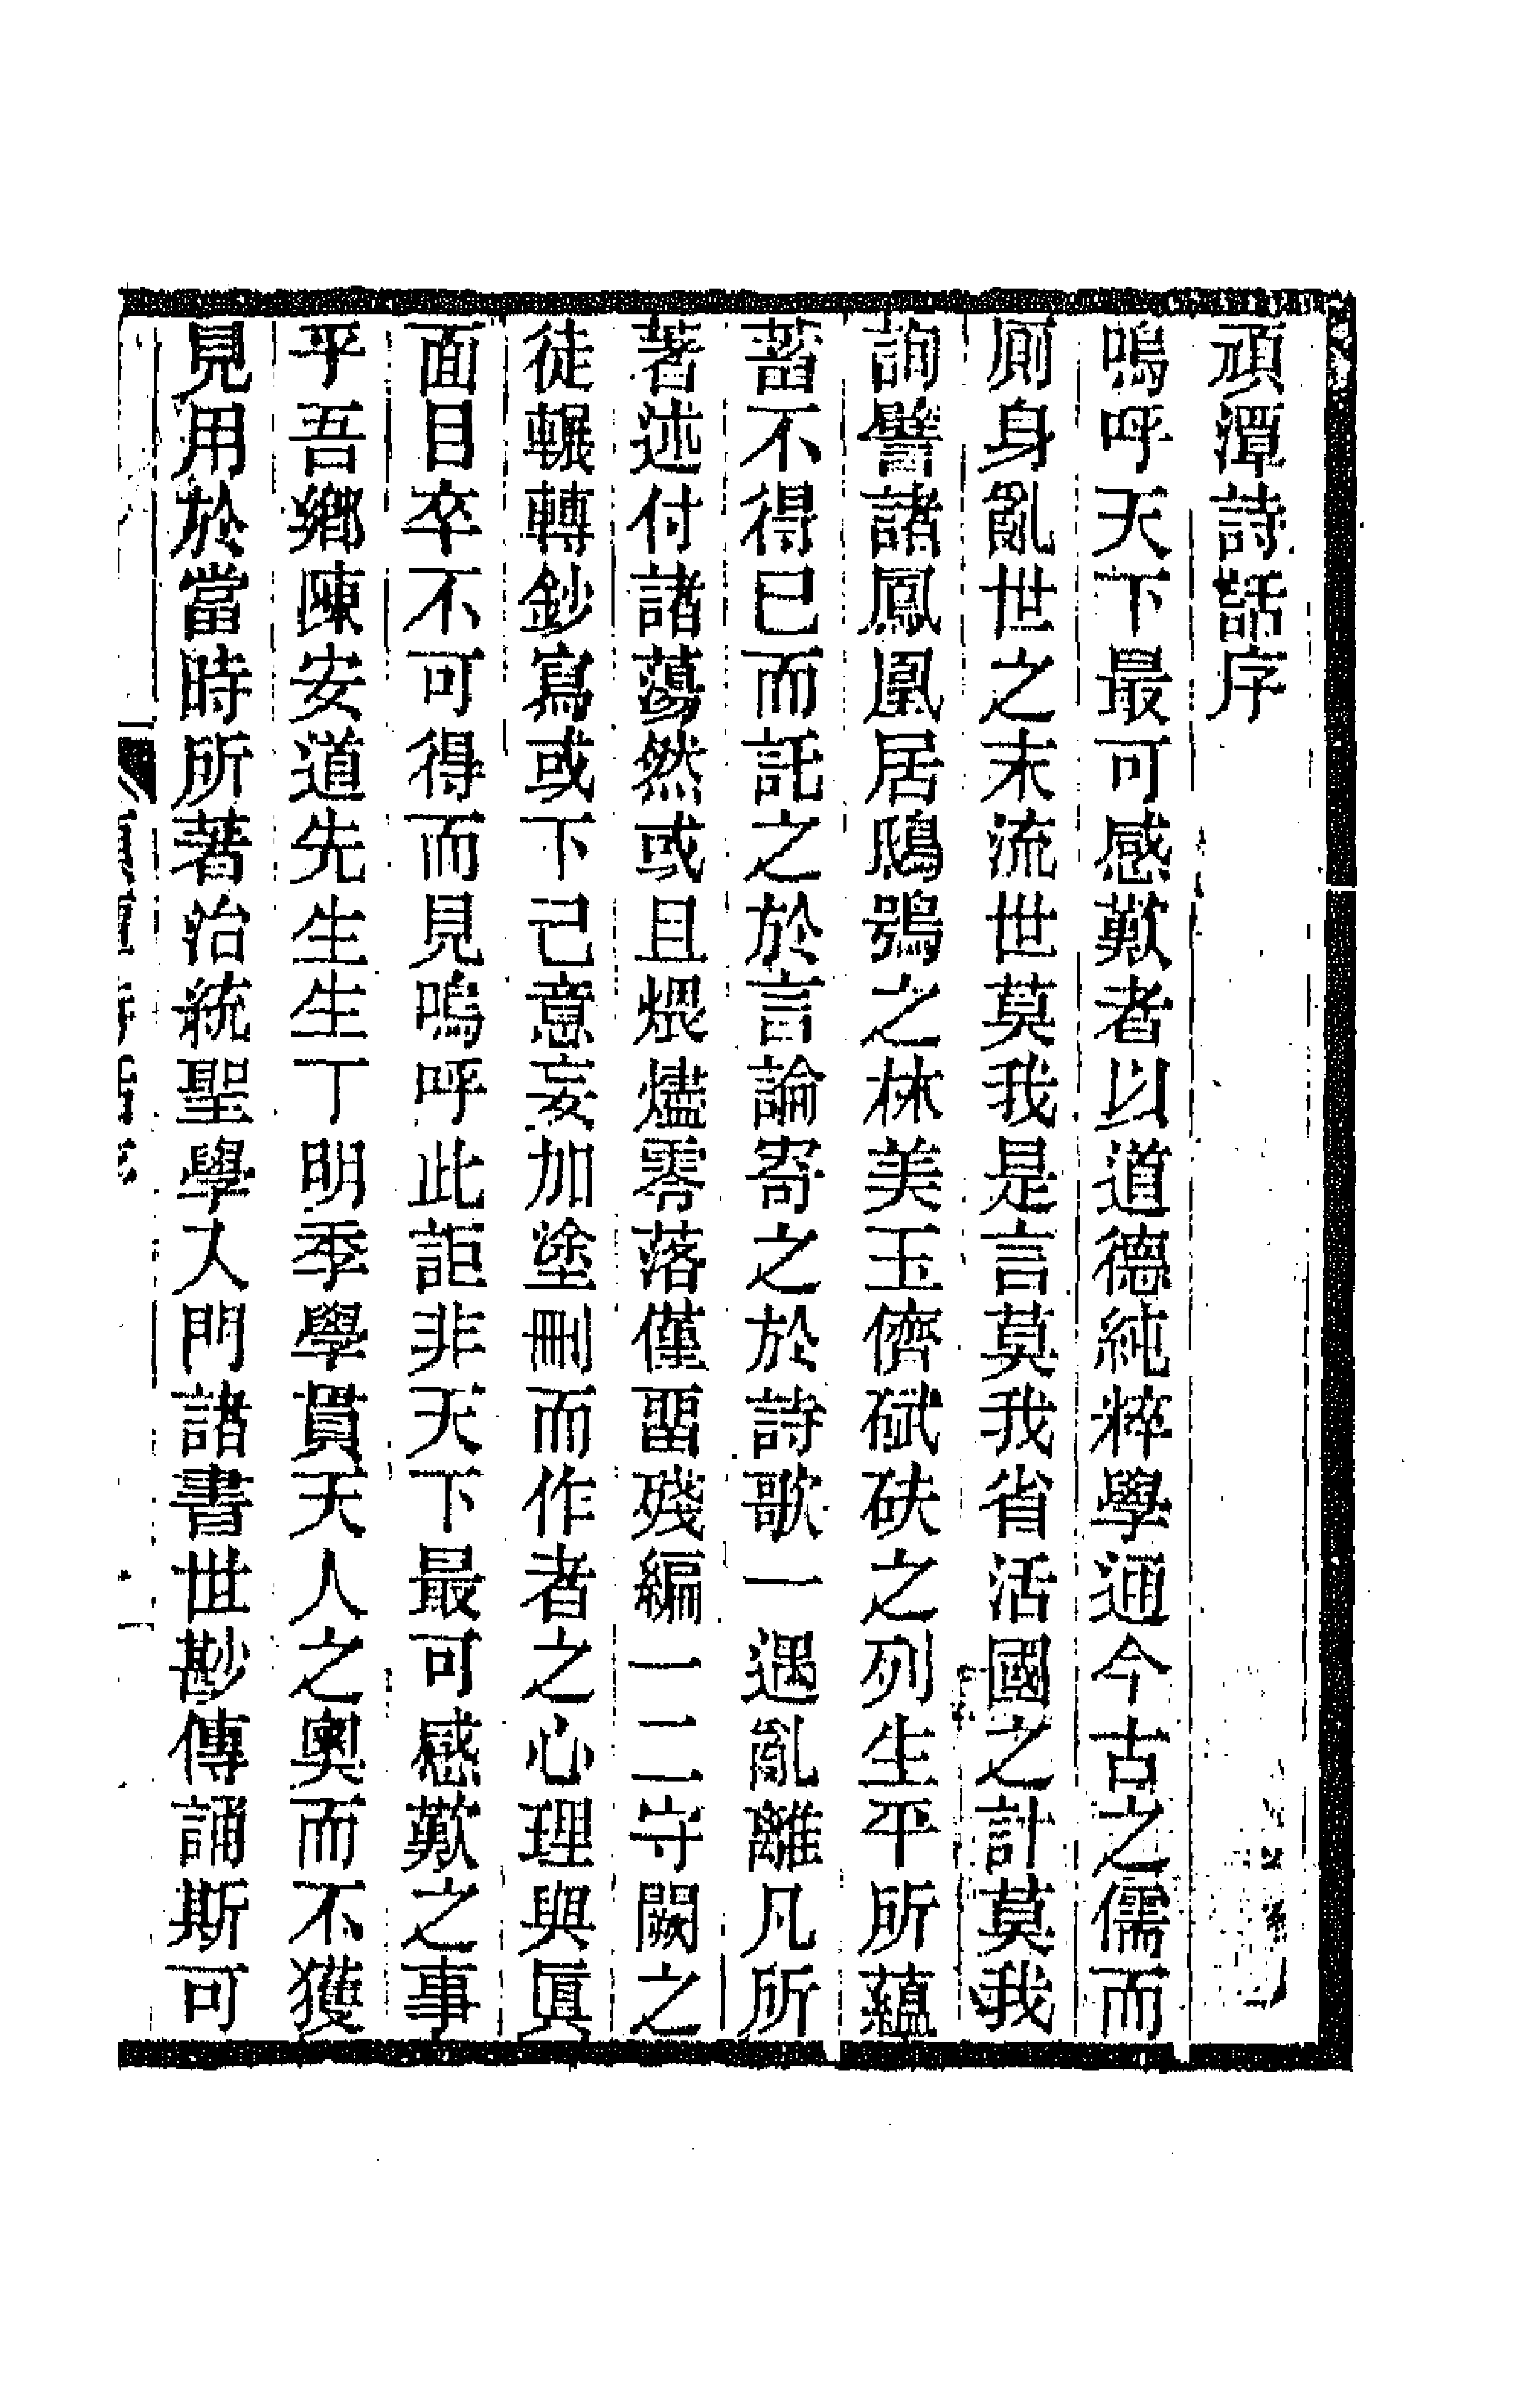 頑潭詩話序
嗚呼天下最可感歎者以道德純粹學通今古之儒而
厠身亂世之末流世莫我是言莫我省活國之計莫我
詢譬諸鳳凰居鴟鴞之林美玉儕碔砆之列生平所蘊
蓄不得已而託之於言論寄之於詩歌一遇亂離凡所
著述付諸蕩然或且煨燼零落僅留殘編一二守闕之
徒輾轉鈔寫或下己意妄加塗刪而作者之心理與眞
面目卒不可得而見嗚呼此詎非天下最可感歎之事
乎吾鄉陳安道先生生丁明季學貫天人之奧而不獲
見用於當時所著治統聖學入門諸書世尠傳誦斯可